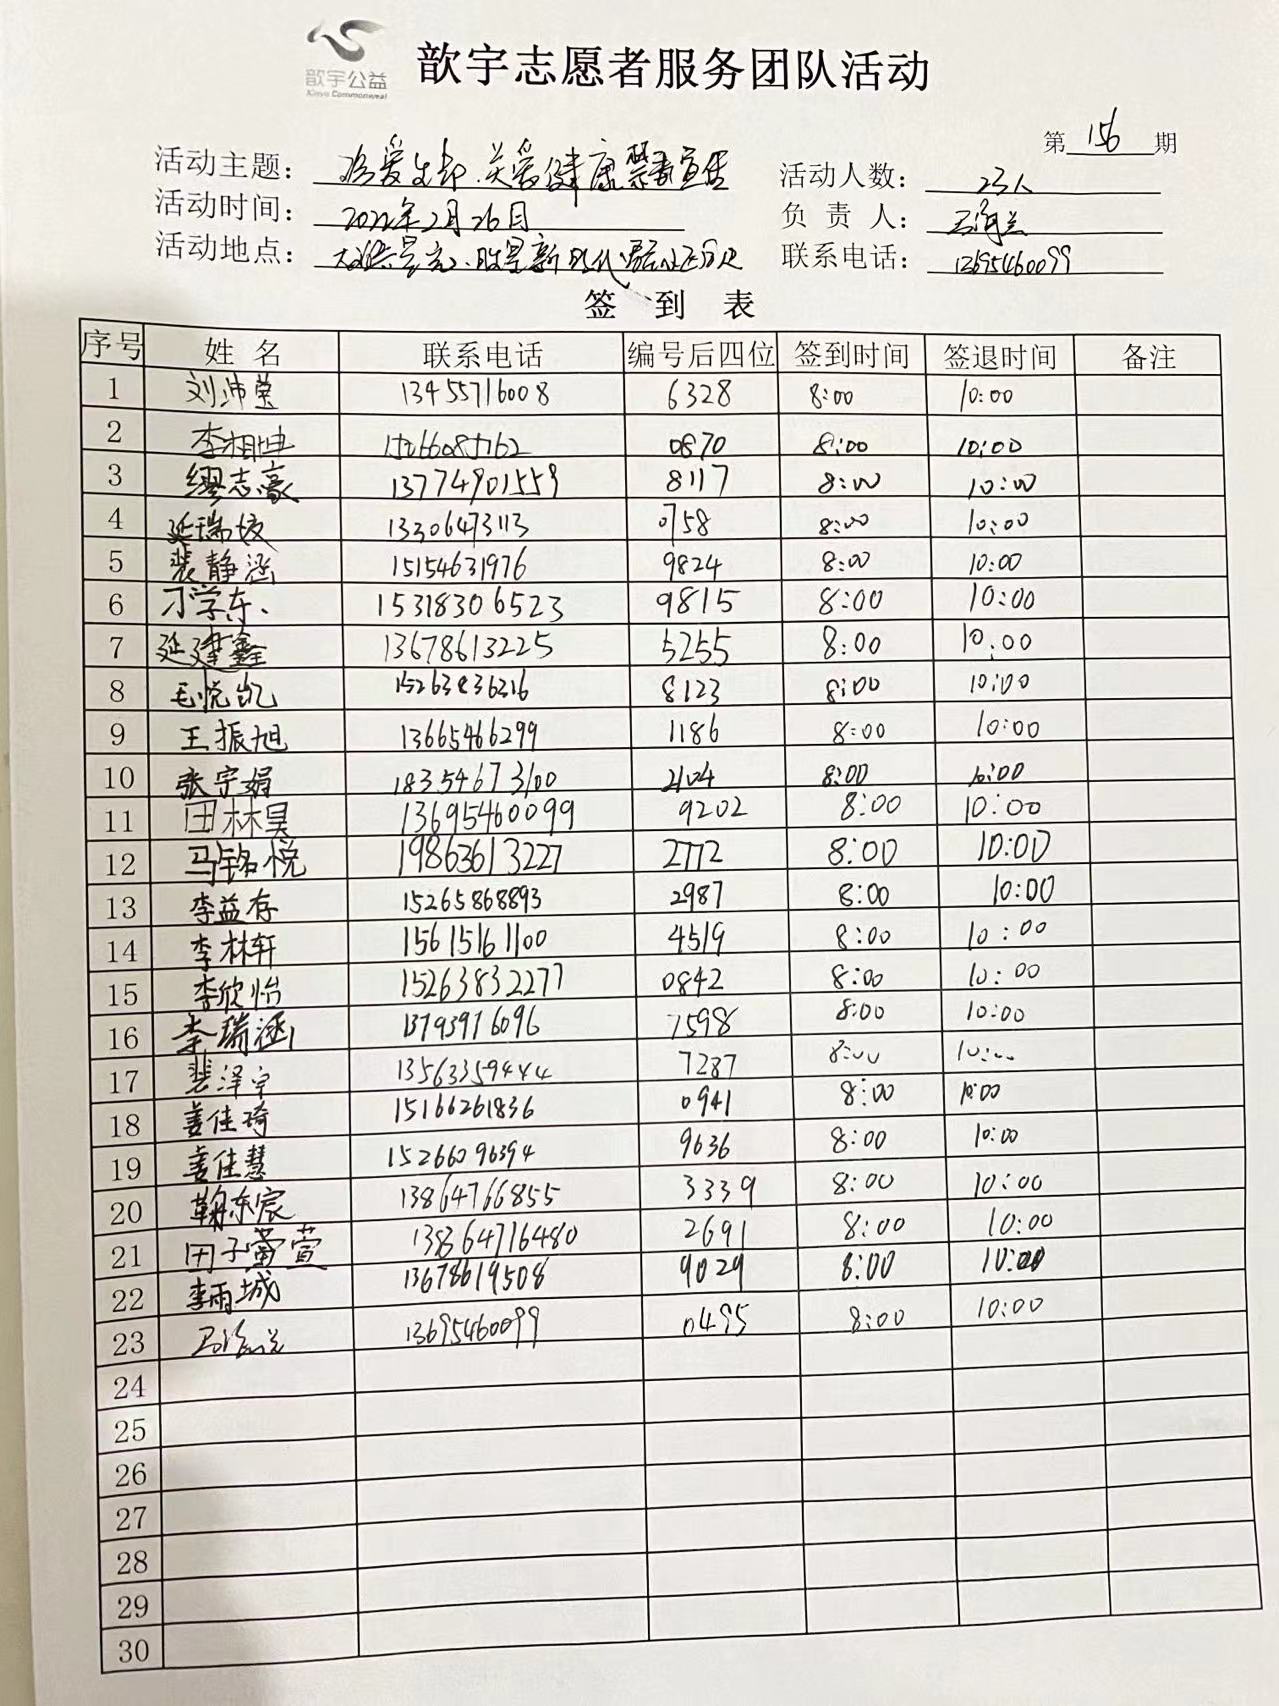 歆宇公益
Xinyu Commonweal
歆宇志愿者服务团队活动
第 156 期
活动主题：珍爱生命.关爱健康禁毒宣传
活动人数：23人
活动时间：2022年2月26日
负责人：
活动地点：
联系电话：13695460099
签 到 表
序号 姓名 联系电话 编号后四位 签到时间 签退时间 备注
1 刘沛莹 13455716008 6328 8:00 10:00
2 李相坤 15066085162 0870 8:00 10:00
3 缪志豪 13774901559 8117 8:00 10:00
4 延瑞 13306473113 0758 8:00 10:00
5 裴静涵 15154631976 9824 8:00 10:00
6 刁学东 15318306523 9815 8:00 10:00
7 延建鑫 13678613225 5255 8:00 10:00
8 毛悦凯 8123 8:00 10:00
9 王振旭 13665466299 1186 8:00 10:00
10 张宇娟 18354673100 2104 8:00 10:00
11 田林昊 13695460099 9202 8:00 10:00
12 马铭悦 19863613227 2772 8:00 10:00
13 李益存 15265868893 2987 8:00 10:00
14 李林轩 15615161100 4519 8:00 10:00
15 李欣怡 15263832277 0842 8:00 10:00
16 李瑞涵 13793976096 7598 8:00 10:00
17 裴泽宇 13563359444 7287 8:00 10:00
18 姜佳琦 15166261836 0941 8:00 10:00
19 姜佳慧 15266096394 9636 8:00 10:00
20 鞠东宸 13864766855 3339 8:00 10:00
21 田子萱 13864716480 2691 8:00 10:00
22 李雨城 13678619508 9029 8:00 10:00
23 13695460099 0495 8:00 10:00
24
25
26
27
28
29
30